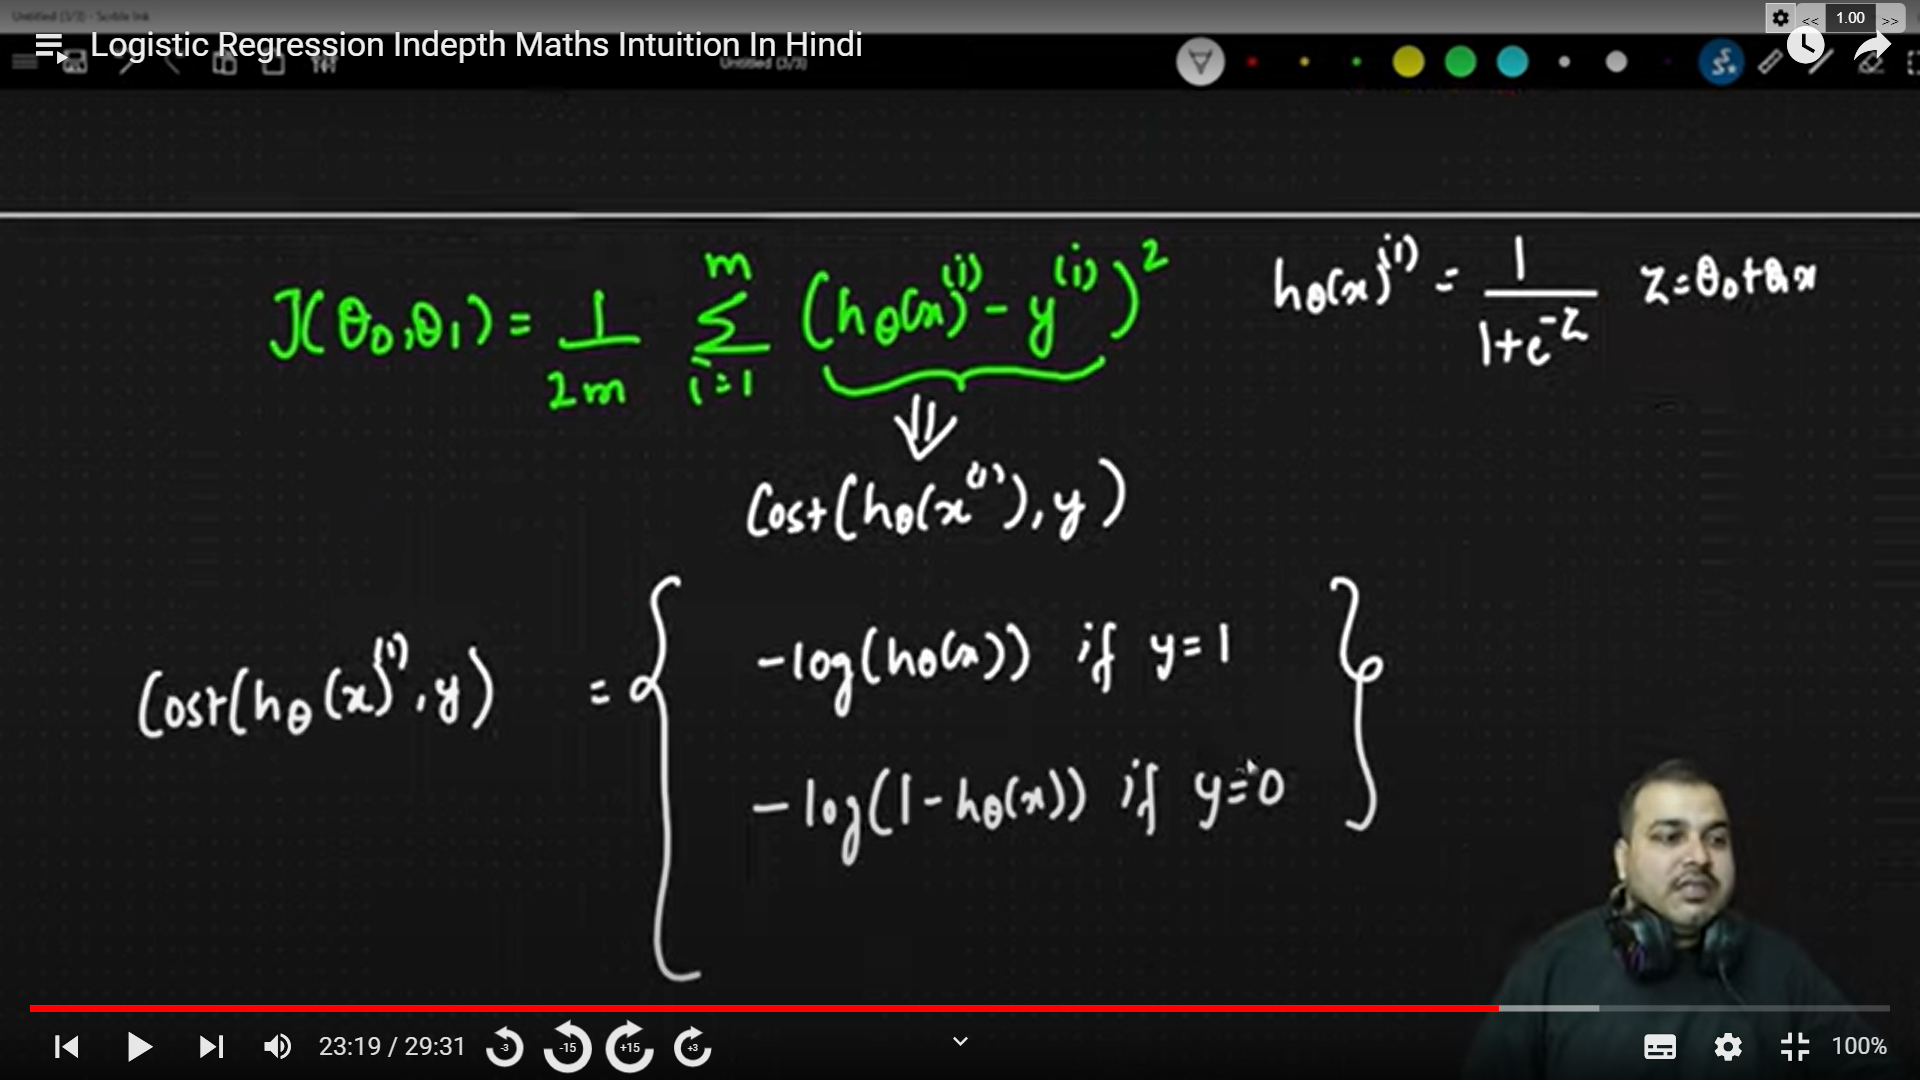 Untitled (3/3) - Scribble Ink
<< 1.00 >>
Logistic Regression Indepth Maths Intuition In Hindi
Untitled (3/3)
J(θ₀,θ₁) = 1/2m Σᵢ₌₁ᵐ (hθ(x)⁽ⁱ⁾ - y⁽ⁱ⁾)²
hθ(x)⁽ⁱ⁾ = 1/1+e⁻ᶻ z=θ₀+θ₁x
Cost(hθ(x⁽ⁱ⁾),y)
Cost(hθ(x)⁽ⁱ⁾,y) =
-log(hθ(x)) if y=1
-log(1-hθ(x)) if y=0
23:19 / 29:31 -3 -15 +15 +3 100%